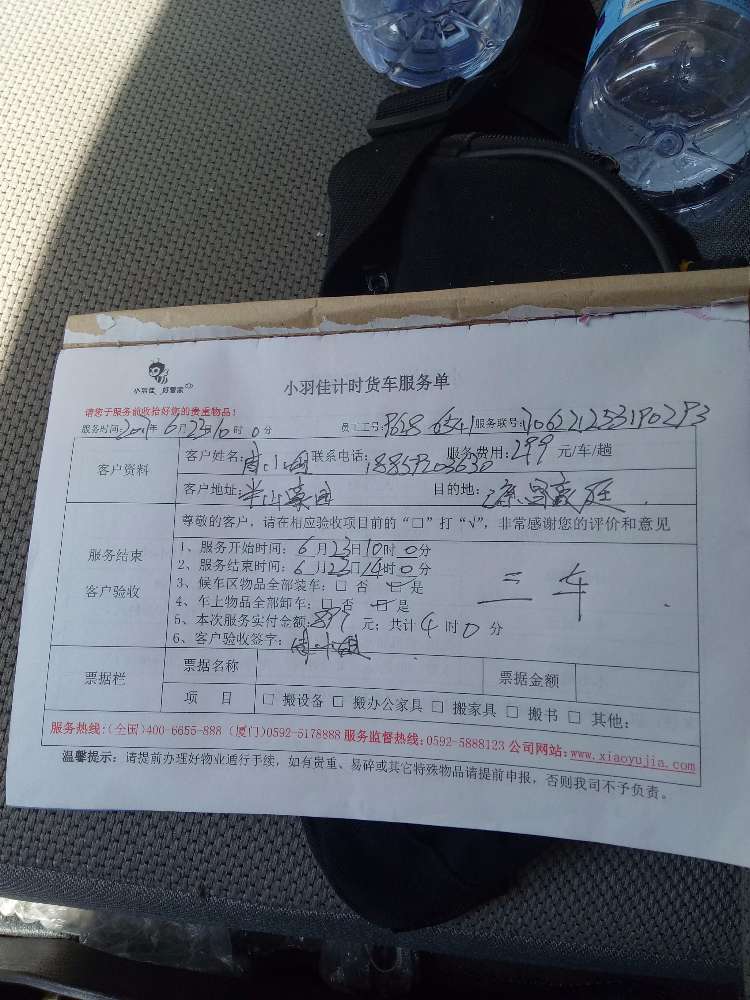 小羽佳 好管家
小羽佳计时货车服务单
请您于服务前收拾好您的贵重物品!
服务时间:2021年6月23日10时0分 员工工号: 服务联号:
客户资料
客户姓名: 联系电话: 服务费用:299元/车/趟
客户地址:半山豪园 目的地:
服务结束
客户验收
尊敬的客户,请在相应验收项目前的“□”打“√”,非常感谢您的评价和意见
1、服务开始时间:6月23日10时0分
2、服务结束时间:6月23日14时0分
3、候车区物品全部装车:□ 否 ☑ 是
4、车上物品全部卸车:□ 否 ☑ 是
三车
5、本次服务实付金额:897元;共计4时0分
6、客户验收签字:
票据栏
票据名称 票据金额
项 目 □ 搬设备 □ 搬办公家具 □ 搬家具 □ 搬书 □ 其他:
服务热线:(全国)400-6655-888 (厦门)0592-5178888 服务监督热线:0592-5888123 公司网站:www.xiaoyujia.com
温馨提示:请提前办理好物业通行手续,如有贵重、易碎或其它特殊物品请提前申报,否则我司不予负责。